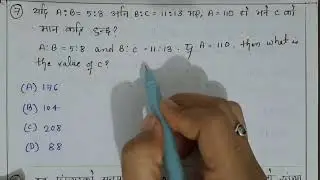 7 यदि A:B = 5:8 अनि B:C = 11:13 भए, A = 110 हो भने C को
मान कति हुन्छ?
A:B = 5:8 and B:C = 11:13. If A = 110, then what is
the value of C?
(A) 176
(B) 104
(C) 208
(D) 88